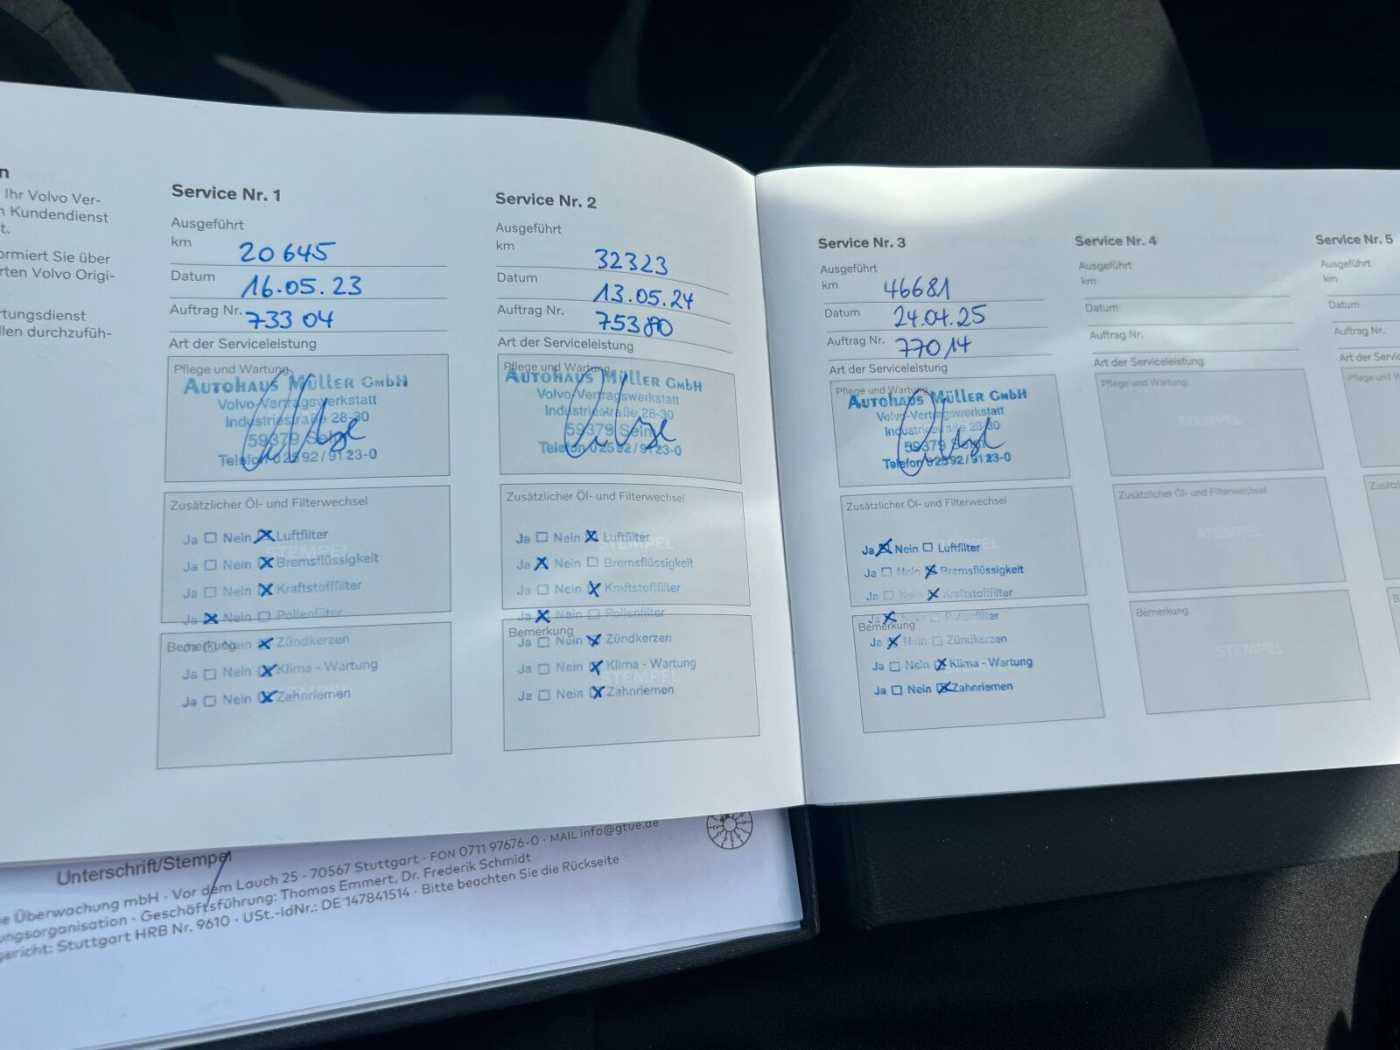 n
Ihr Volvo Ver-
n Kundendienst
t.
ormiert Sie über
rten Volvo Origi-
rtungsdienst
llen durchzufüh-
Service Nr. 1
Ausgeführt
km 20645
Datum 16.05.23
Auftrag Nr. 73304
Art der Serviceleistung
Pflege und Wartung
AUTOHAUS MÜLLER GMBH
Volvo-Vertragswerkstatt
Industriestraße 28-30
59379 Selm
Telefon 02592/9123-0
Zusätzlicher Öl- und Filterwechsel
STEMPEL
Ja Nein Luftfilter
Ja Nein Bremsflüssigkeit
Ja Nein Kraftstofffilter
Ja Nein Pollenfilter
Bemerkung
Ja Nein Zündkerzen
Ja Nein Klima - Wartung
Ja Nein Zahnriemen
Service Nr. 2
Ausgeführt
km 32323
Datum 13.05.24
Auftrag Nr. 75380
Art der Serviceleistung
Pflege und Wartung
AUTOHAUS MÜLLER GMBH
Volvo-Vertragswerkstatt
Industriestraße 28-30
59379 Selm
Telefon 02592/9123-0
Zusätzlicher Öl- und Filterwechsel
STEMPEL
Ja Nein Luftfilter
Ja Nein Bremsflüssigkeit
Ja Nein Kraftstofffilter
Ja Nein Pollenfilter
Bemerkung
Ja Nein Zündkerzen
Ja Nein Klima - Wartung
STEMPEL
Ja Nein Zahnriemen
Service Nr. 3
Ausgeführt
km 46681
Datum 24.04.25
Auftrag Nr. 77014
Art der Serviceleistung
Pflege und Wartung
AUTOHAUS MÜLLER GMBH
Volvo-Vertragswerkstatt
Industriestraße 28-30
59379 Selm
Telefon 02592/9123-0
Zusätzlicher Öl- und Filterwechsel
Ja Nein Luftfilter
Ja Nein Bremsflüssigkeit
Ja Nein Kraftstofffilter
Ja Nein Pollenfilter
Bemerkung
Ja Nein Zündkerzen
Ja Nein Klima - Wartung
Ja Nein Zahnriemen
Service Nr. 4
Ausgeführt
km
Datum
Auftrag Nr.
Art der Serviceleistung
Pflege und Wartung
STEMPEL
Zusätzlicher Öl- und Filterwechsel
STEMPEL
Bemerkung
STEMPEL
Service Nr. 5
Ausgeführt
km
Datum
Auftrag Nr.
Art der Servic
Pflege und W
Zusätzl
B
Unterschrift/Stempel
e Überwachung mbH · Vor dem Lauch 25 · 70567 Stuttgart · FON 0711 97676-0 · MAIL info@gtue.de
ungsorganisation · Geschäftsführung: Thomas Emmert, Dr. Frederik Schmidt
gericht: Stuttgart HRB Nr. 9610 · USt.-IdNr.: DE 147841514 · Bitte beachten Sie die Rückseite